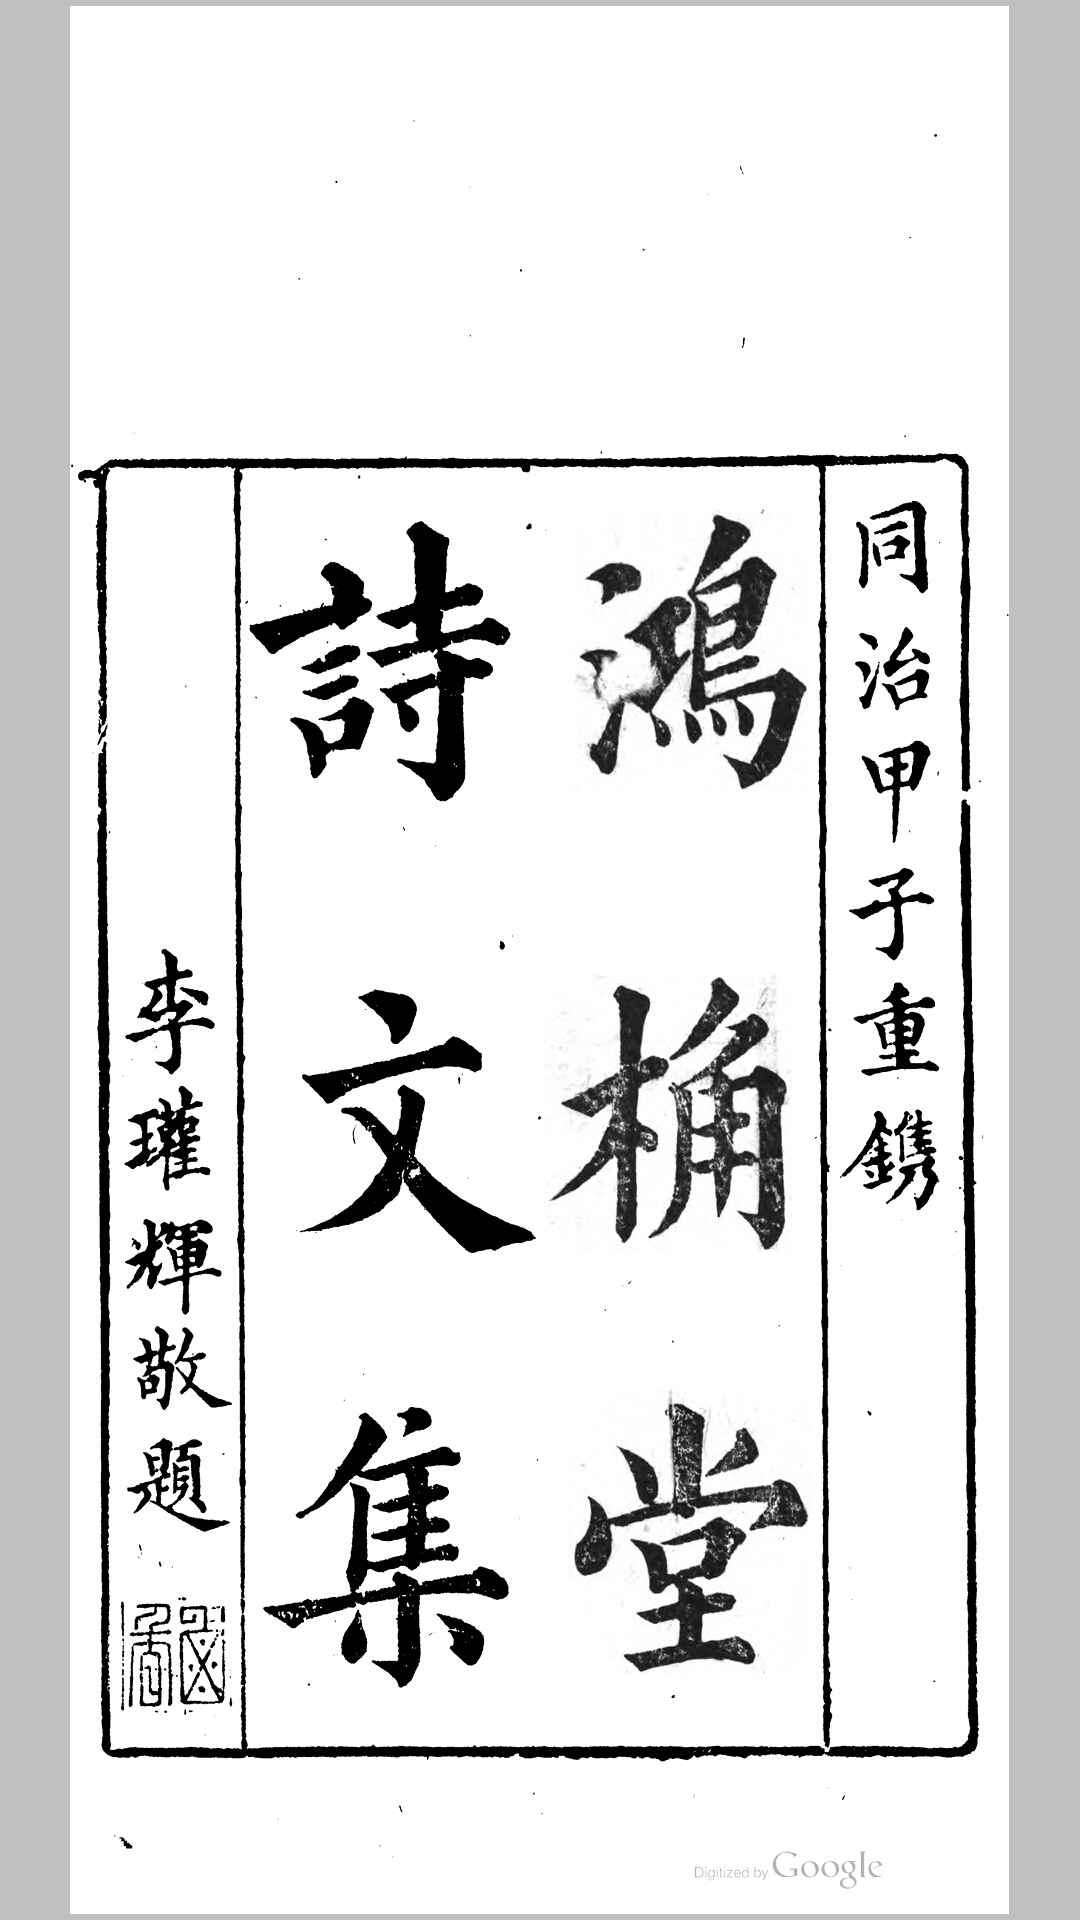 同治甲子重鐫
鴻桷堂
詩文集
李瓘輝敬題
Digitized by Google